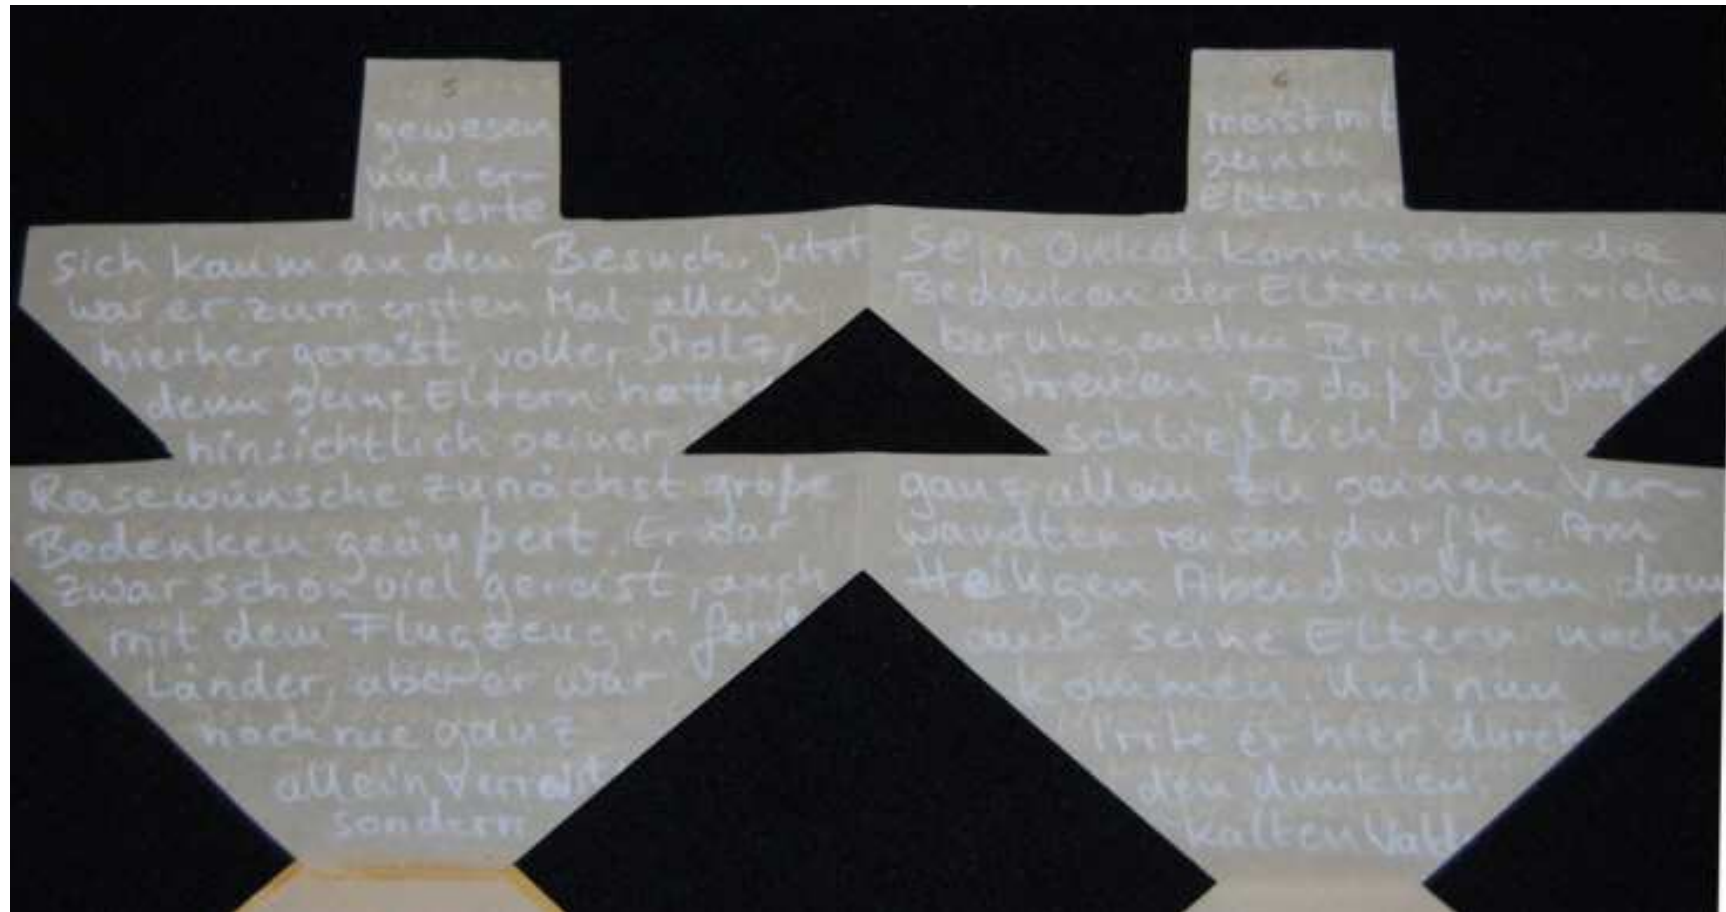 5
gewesen
und er-
innerte
sich kaum an den Besuch. Jetzt
war er zum ersten Mal allein
hierher gereist, voller Stolz,
denn seine Eltern hatten
hinsichtlich seiner
Reisewünsche zunächst große
Bedenken geäußert. Er war
zwar schon viel gereist, auch
mit dem Flugzeug in ferne
Länder, aber er war
noch nie ganz
allein verreist
sondern
6
meist mit
seinen
Eltern.
Sein Onkel konnte aber die
Bedenken der Eltern mit vielen
beruhigenden Briefen zer-
streuen, so daß der Junge
schließlich doch
ganz allein zu seinem Ver-
wandten reisen durfte. Am
Heiligen Abend wollten dann
auch seine Eltern nach
kommen. Und nun
irrte er hier durch
den dunklen,
kalten Wald